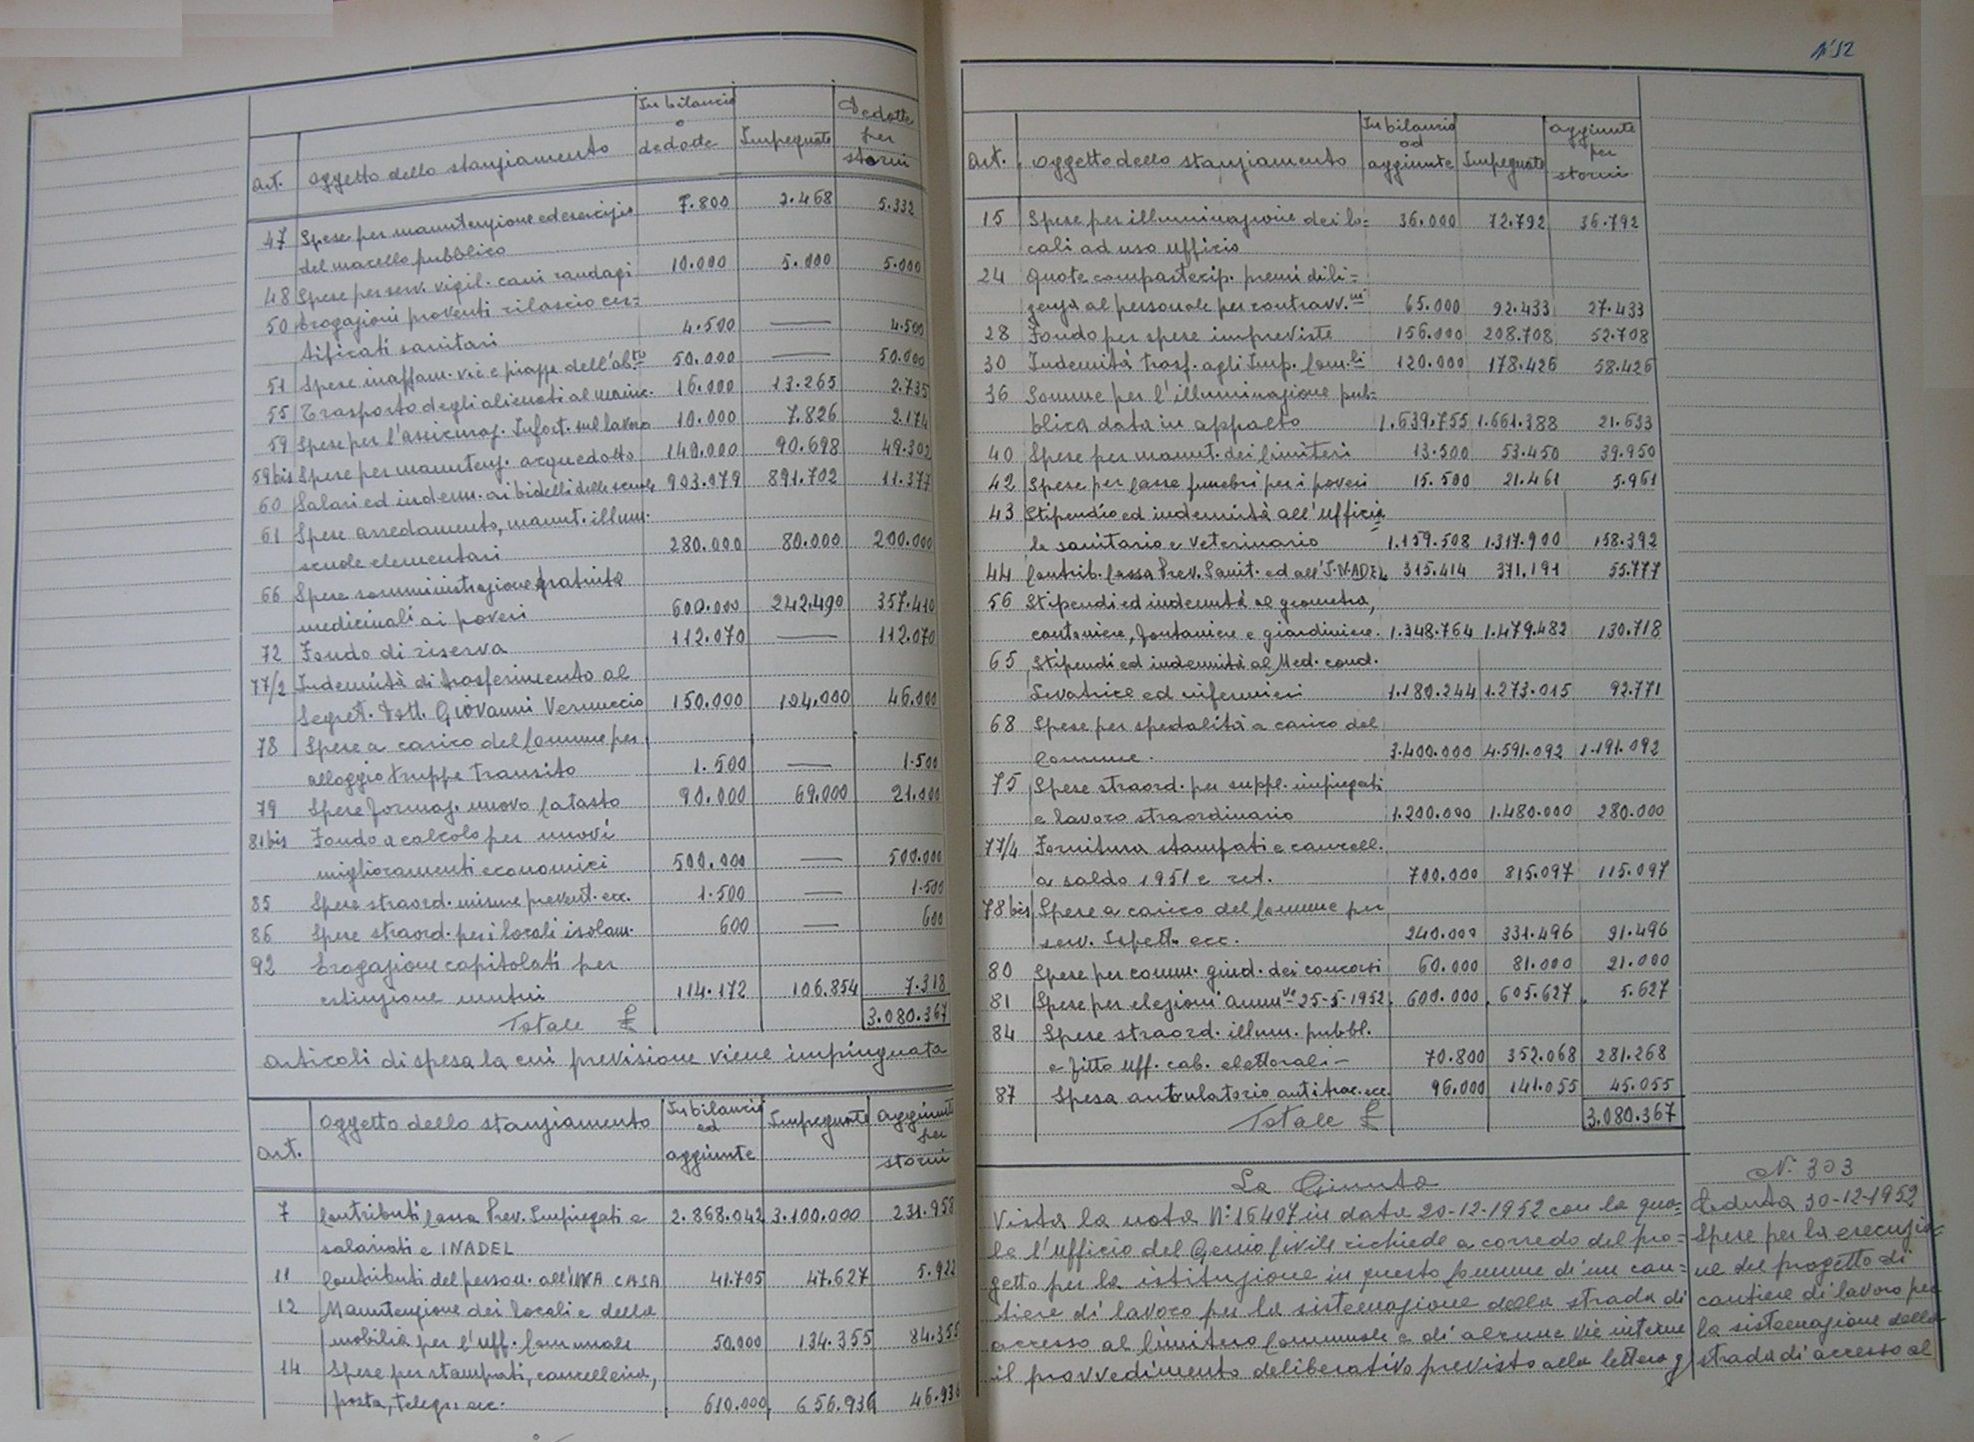 In bilancio Dedotte
o per
Art. Oggetto dello stanziamento dedotte Impegnate storni
47 Spese per manutenzione ed esercizio 7.800 2.468 5.332
del macello pubblico
48 Spese per serv. vigil. cani randagi 10.000 5.000 5.000
50 Erogazioni proventi rilascio cer=
tificati sanitari 4.500 — 4.500
51 Spese innaffiam. vie e piazze dell'ab.to 50.000 — 50.000
55 Trasporto degli alienati al manic. 16.000 13.265 2.735
59 Spese per l'assicuraz. Infort. sul lavoro 10.000 7.826 2.174
59bis Spese per manutenz. acquedotto 140.000 90.698 49.302
60 Salari ed indenn. ai bidelli delle scuole 903.079 891.702 11.377
61 Spese arredamento, manut. illum.
scuole elementari 280.000 80.000 200.000
66 Spese somministrazione gratuita
medicinali ai poveri 600.000 242.490 357.410
72 Fondo di riserva 112.070 — 112.070
77/2 Indennità di trasferimento al
Segret. Dott. Giovanni Vernuccio 150.000 104.000 46.000
78 Spese a carico del Comune per
alloggio truppe transito 1.500 — 1.500
79 Spese formaz. nuovo Catasto 90.000 69.000 21.000
81bis Fondo a calcolo per nuovi
miglioramenti economici 500.000 — 500.000
85 Spese straord. misure prevent. ecc. 1.500 — 1.500
86 Spese straord. per i locali isolam. 600 — 600
92 Erogazione capitolati per
estinzione mutui 114.172 106.854 7.318
Totale £ 3.080.367
Articoli di spesa la cui previsione viene impinguata
In bilancio Aggiunte
ed per
Art. Oggetto dello stanziamento aggiunte Impegnate storni
7 Contributi Cassa Prev. Impiegati e 2.868.042 3.100.000 231.958
salariati e INADEL
11 Contributi del person. all'INA CASA 41.705 47.627 5.922
12 Manutenzione dei locali e della
mobilia per l'Uff. Comunale 50.000 134.355 84.355
14 Spese per stampati, cancelleria,
posta, telegr. ecc. 610.000 656.936 46.936
N'52
In bilancio Aggiunte
ed per
Art. Oggetto dello stanziamento aggiunte Impegnate storni
15 Spese per illuminazione dei lo=
cali ad uso ufficio 36.000 72.792 36.792
24 Quote compartecip. premi dili=
genza al personale per contravv.ni 65.000 92.433 27.433
28 Fondo per spese impreviste 156.000 208.708 52.708
30 Indennità trasf. agli Imp. Com.li 120.000 178.426 58.426
36 Somme per l'illuminazione pub=
blica data in appalto 1.639.755 1.661.388 21.633
40 Spese per manut. dei Cimiteri 13.500 53.450 39.950
42 Spese per casse funebri per i poveri 15.500 21.461 5.961
43 Stipendio ed indennità all'Uffici=
le sanitario e Veterinario 1.159.508 1.317.900 158.392
44 Contrib. Cassa Prev. Sanit. ed all'I.N.ADEL 315.414 371.191 55.777
56 Stipendi ed indennità al geometra,
cantoniere, fontaniere e giardiniere. 1.348.764 1.479.482 130.718
65 Stipendi ed indennità al Med. cond.
Levatrice ed infermieri 1.180.244 1.273.015 92.771
68 Spese per spedalità a carico del
Comune. 3.400.000 4.591.092 1.191.092
75 Spese straord. per suppl. impiegati
e lavoro straordinario 1.200.000 1.480.000 280.000
77/4 Fornitura stampati e cancell.
a saldo 1951 e ret. 700.000 815.097 115.097
78bis Spese a carico del Comune per
serv. Ispett. ecc. 240.000 331.496 91.496
80 Spese per comm. giud. dei concorsi 60.000 81.000 21.000
81 Spese per elezioni Amm.ve 25-5-1952 600.000 605.627 5.627
84 Spese straord. illum. pubbl.
e fitto Uff. cab. elettorali- 70.800 352.068 281.268
87 Spesa ambulatorio antitrac. ecc. 96.000 141.055 45.055
Totale £ 3.080.367
La Giunta
Vista la nota N° 16407 in data 20-12-1952 con la qua=
le l'Ufficio del Genio Civile richiede a corredo del pro=
getto per la istituzione in questo Comune di un can=
tiere di lavoro per la sistemazione della strada di
accesso al Cimitero Comunale e di alcune vie interne
il provvedimento deliberativo previsto alla lettera g/
N. 303
Seduta 30-12-1952
Spese per la esecuzio=
ne del progetto di
cantiere di lavoro per
la sistemazione della
strada di accesso al